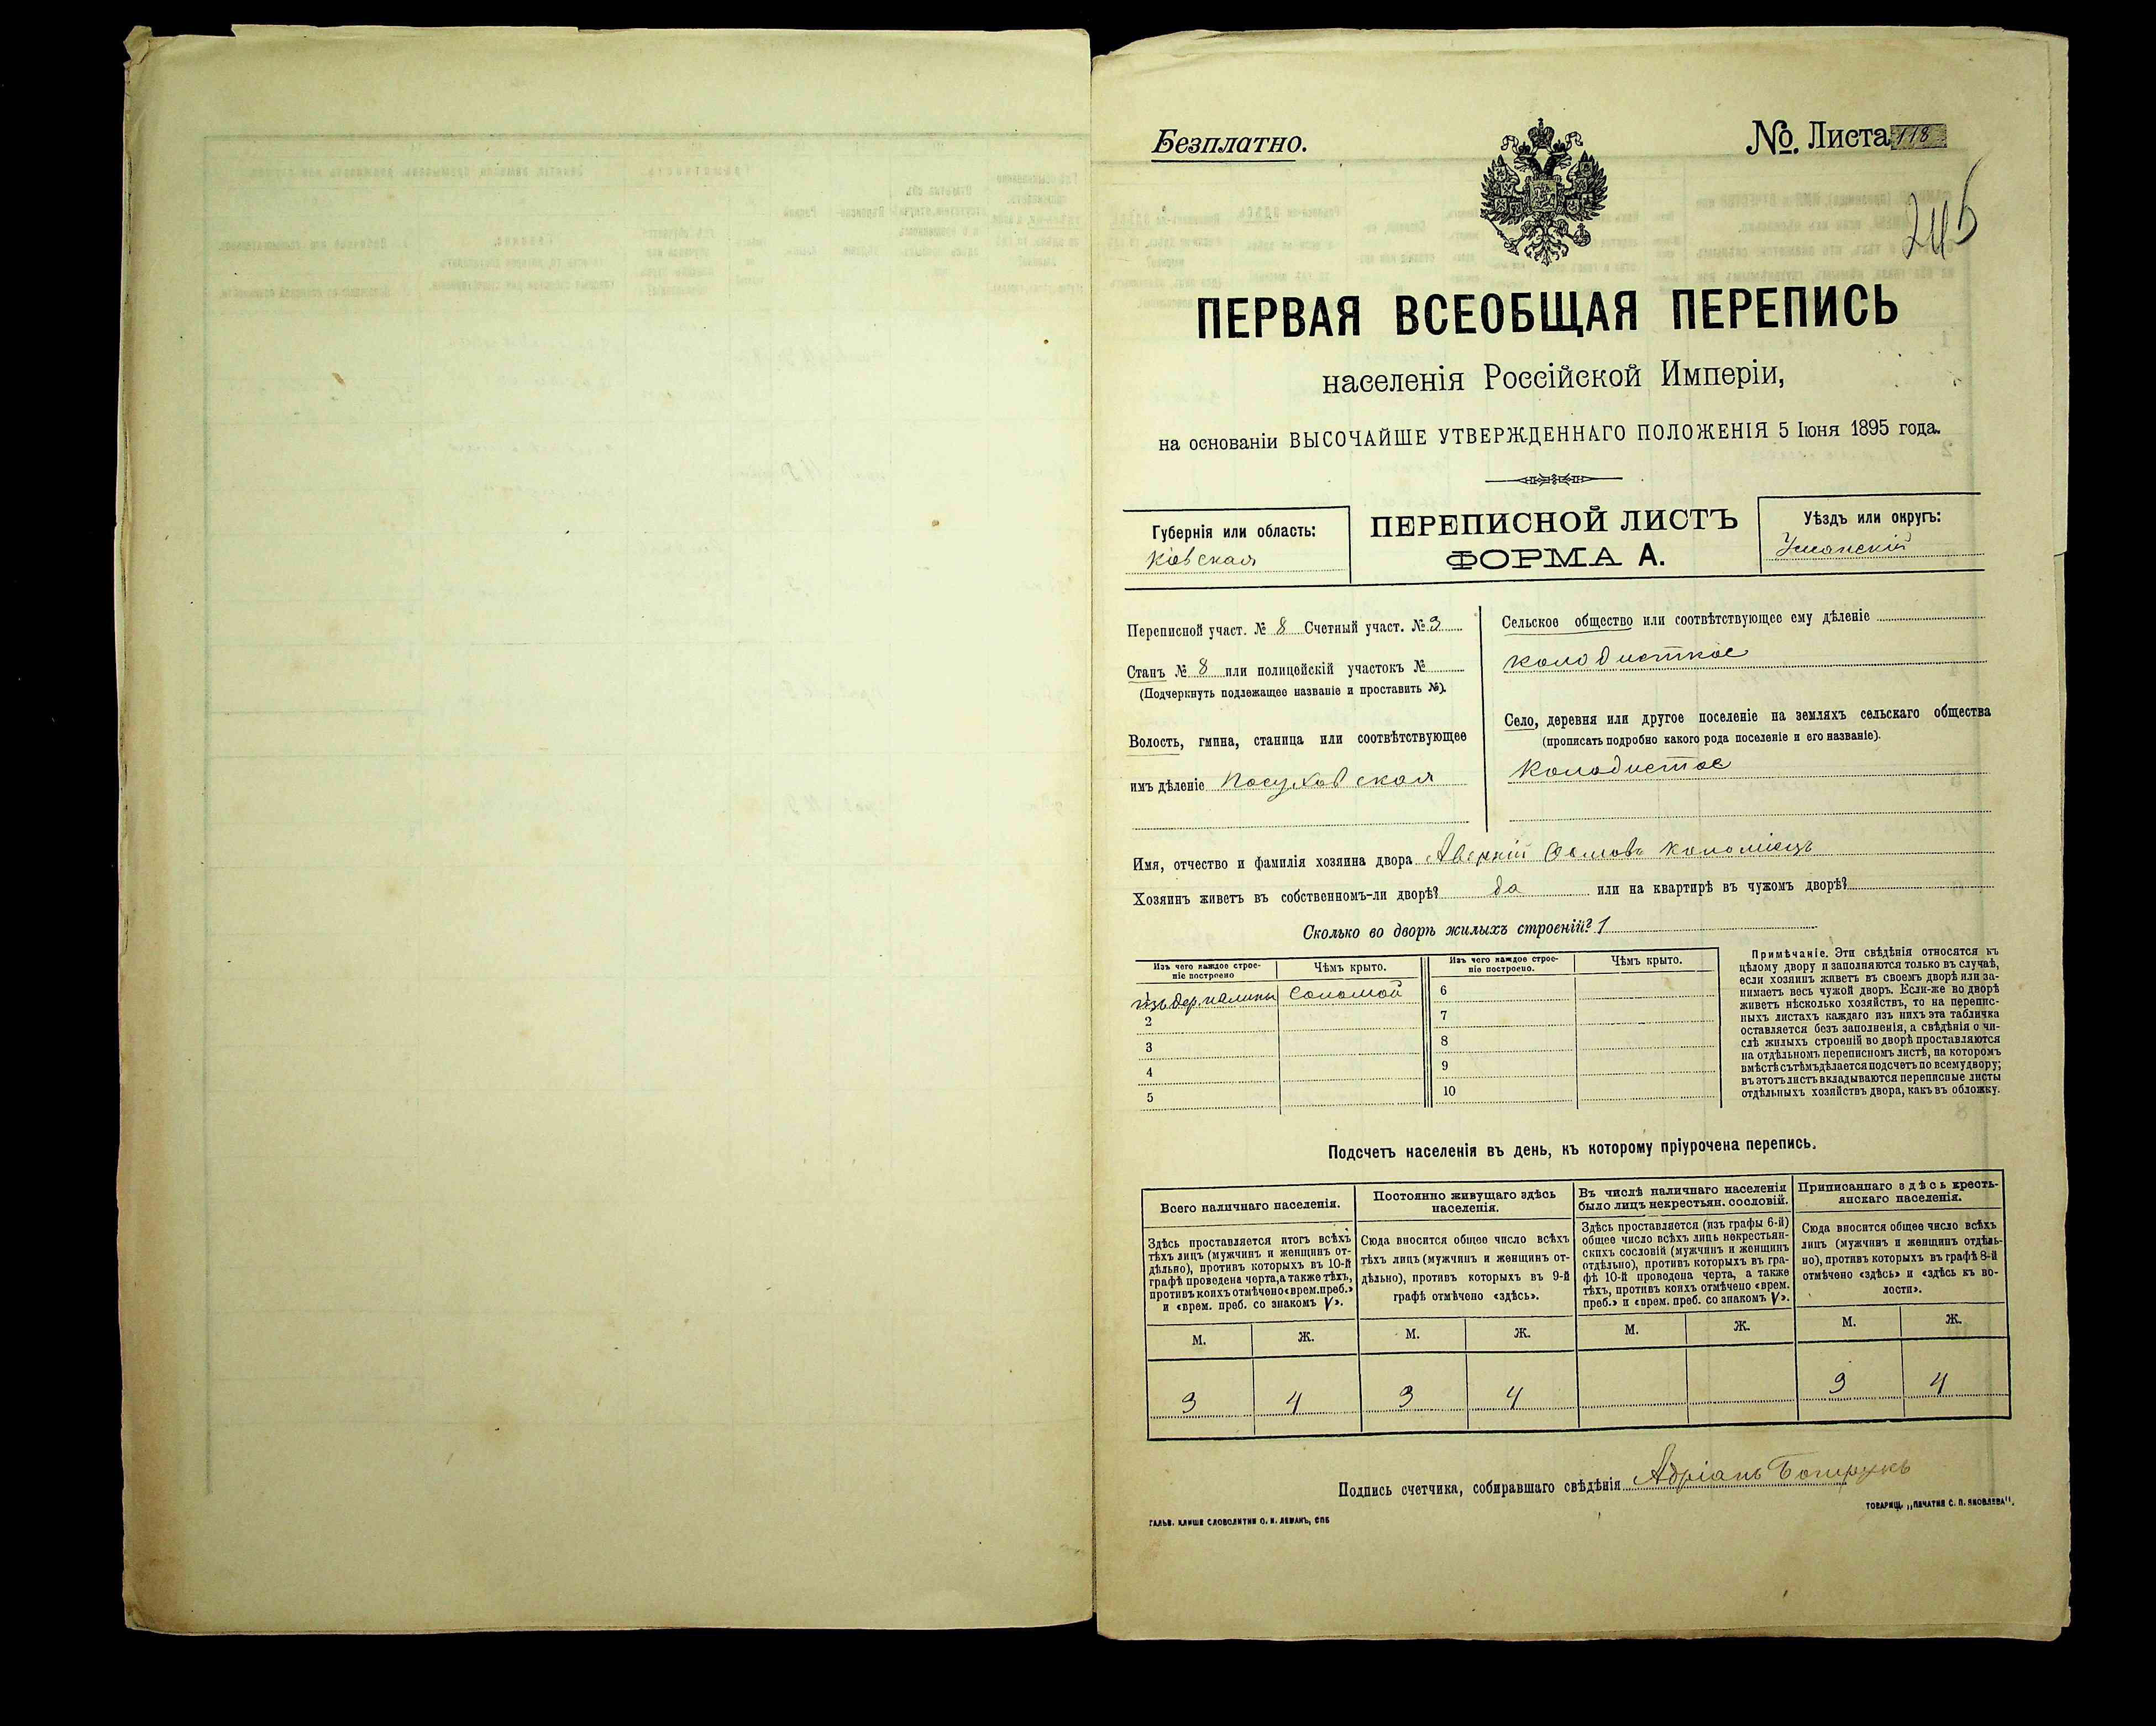 Безплатно.
№. Листа 118
245
ПЕРВАЯ ВСЕОБЩАЯ ПЕРЕПИСЬ
населенія Россійской Имперіи,
на основаніи ВЫСОЧАЙШЕ УТВЕРЖДЕННАГО ПОЛОЖЕНІЯ 5 Іюня 1895 года.
Губернія или область:
Кіевская
ПЕРЕПИСНОЙ ЛИСТЪ
ФОРМА А.
Уѣздъ или округъ:
Уманскій
Переписной участ. № 8 Счетный участ. № 3
Станъ № 8 или полицейскій участокъ №
(Подчеркнуть подлежащее названіе и проставить №).
Волость, гмина, станица или соотвѣтствующее
имъ дѣленіе Посуховская
Сельское общество или соотвѣтствующее ему дѣленіе
Колодисткое
Село, деревня или другое поселеніе на земляхъ сельскаго общества
(прописать подробно какого рода поселеніе и его названіе).
Колодистое
Имя, отчество и фамилія хозяина двора Аверкій Фомовъ Коломіецъ
Хозяинъ живетъ въ собственномъ-ли дворѣ? да или на квартирѣ въ чужомъ дворѣ?
Сколько во дворѣ жилыхъ строеній? 1
Изъ чего каждое строе-
ніе построено
Чѣмъ крыто.
Изъ чего каждое строе-
ніе построено.
Чѣмъ крыто.
1 изъ дер. и глины Соломой 6
2 7
3 8
4 9
5 10
Примѣчаніе. Эти свѣдѣнія относятся къ
цѣлому двору и заполняются только въ случаѣ,
если хозяинъ живетъ въ своемъ дворѣ или за-
нимаетъ весь чужой дворъ. Если-же во дворѣ
живетъ нѣсколько хозяйствъ, то на перепис-
ныхъ листахъ каждаго изъ нихъ эта табличка
оставляется безъ заполненія, а свѣдѣнія о чи-
слѣ жилыхъ строеній во дворѣ проставляются
на отдѣльномъ переписномъ листѣ, на которомъ
вмѣстѣ съ тѣмъ дѣлается подсчетъ по всему двору;
въ этотъ листъ вкладываются переписные листы
отдѣльныхъ хозяйствъ двора, какъ въ обложку.
Подсчетъ населенія въ день, къ которому пріурочена перепись.
Всего наличнаго населенія.
Здѣсь проставляется итогъ всѣхъ
тѣхъ лицъ (мужчинъ и женщинъ от-
дѣльно), противъ которыхъ въ 10-й
графѣ проведена черта, а также тѣхъ,
противъ коихъ отмѣчено «врем. преб.»
и «врем. преб. со знакомъ V».
Постоянно живущаго здѣсь
населенія.
Сюда вносится общее число всѣхъ
тѣхъ лицъ (мужчинъ и женщинъ от-
дѣльно), противъ которыхъ въ 9-й
графѣ отмѣчено «здѣсь».
Въ числѣ наличнаго населенія
было лицъ некрестьян. сословій.
Здѣсь проставляется (изъ графы 6-й)
общее число всѣхъ лицъ некрестьян-
скихъ сословій (мужчинъ и женщинъ
отдѣльно), противъ которыхъ въ гра-
фѣ 10-й проведена черта, а также
тѣхъ, противъ коихъ отмѣчено «врем.
преб.» и «врем. преб. со знакомъ V».
Приписаннаго здѣсь кресть-
янскаго населенія.
Сюда вносится общее число всѣхъ
лицъ (мужчинъ и женщинъ отдѣль-
но), противъ которыхъ въ графѣ 8-й
отмѣчено «здѣсь» и «здѣсь къ во-
лости».
М. Ж. М. Ж. М. Ж. М. Ж.
3 4 3 4 3 4
Подпись счетчика, собиравшаго свѣдѣнія Адріанъ
ГАЛЬВ. КЛИШЕ СЛОВОЛИТНИ О. И. ЛЕМАНЪ, СПБ
ТОВАРИЩ. „ПЕЧАТНЯ С. П. ЯКОВЛЕВА".